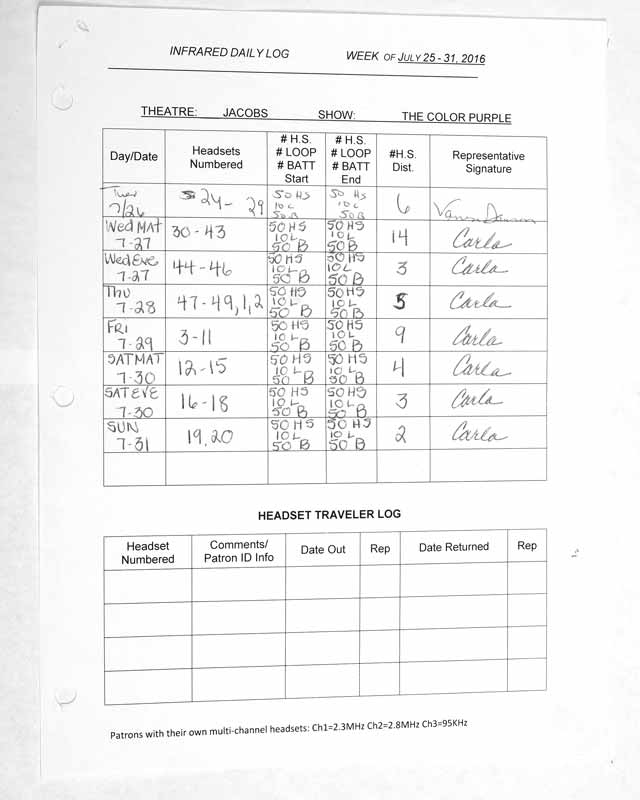 INFRARED DAILY LOG WEEK OF JULY 25 - 31, 2016
THEATRE: JACOBS SHOW: THE COLOR PURPLE
Day/Date
Headsets
Numbered
# H.S.
# LOOP
# BATT
Start
# H.S.
# LOOP
# BATT
End
#H.S.
Dist.
Representative
Signature
Tues
7/26
24 - 29
50 HS
10 L
50 B
50 HS
10 L
50 B
6
Wed MAT
7-27
30 - 43
50 HS
10 L
50 B
50 HS
10 L
50 B
14
Carla
Wed EVE
7-27
44 - 46
50 HS
10 L
50 B
50 HS
10 L
50 B
3
Carla
THU
7-28
47 - 49, 1, 2
50 HS
10 L
50 B
50 HS
10 L
50 B
5
Carla
FRI
7-29
3 - 11
50 HS
10 L
50 B
50 HS
10 L
50 B
9
Carla
SAT MAT
7-30
12 - 15
50 HS
10 L
50 B
50 HS
10 L
50 B
4
Carla
SAT EVE
7-30
16 - 18
50 HS
10 L
50 B
50 HS
10 L
50 B
3
Carla
SUN
7-31
19, 20
50 HS
10 L
50 B
50 HS
10 L
50 B
2
Carla
HEADSET TRAVELER LOG
Headset
Numbered
Comments/
Patron ID Info
Date Out
Rep
Date Returned
Rep
Patrons with their own multi-channel headsets: Ch1=2.3MHz Ch2=2.8MHz Ch3=95KHz